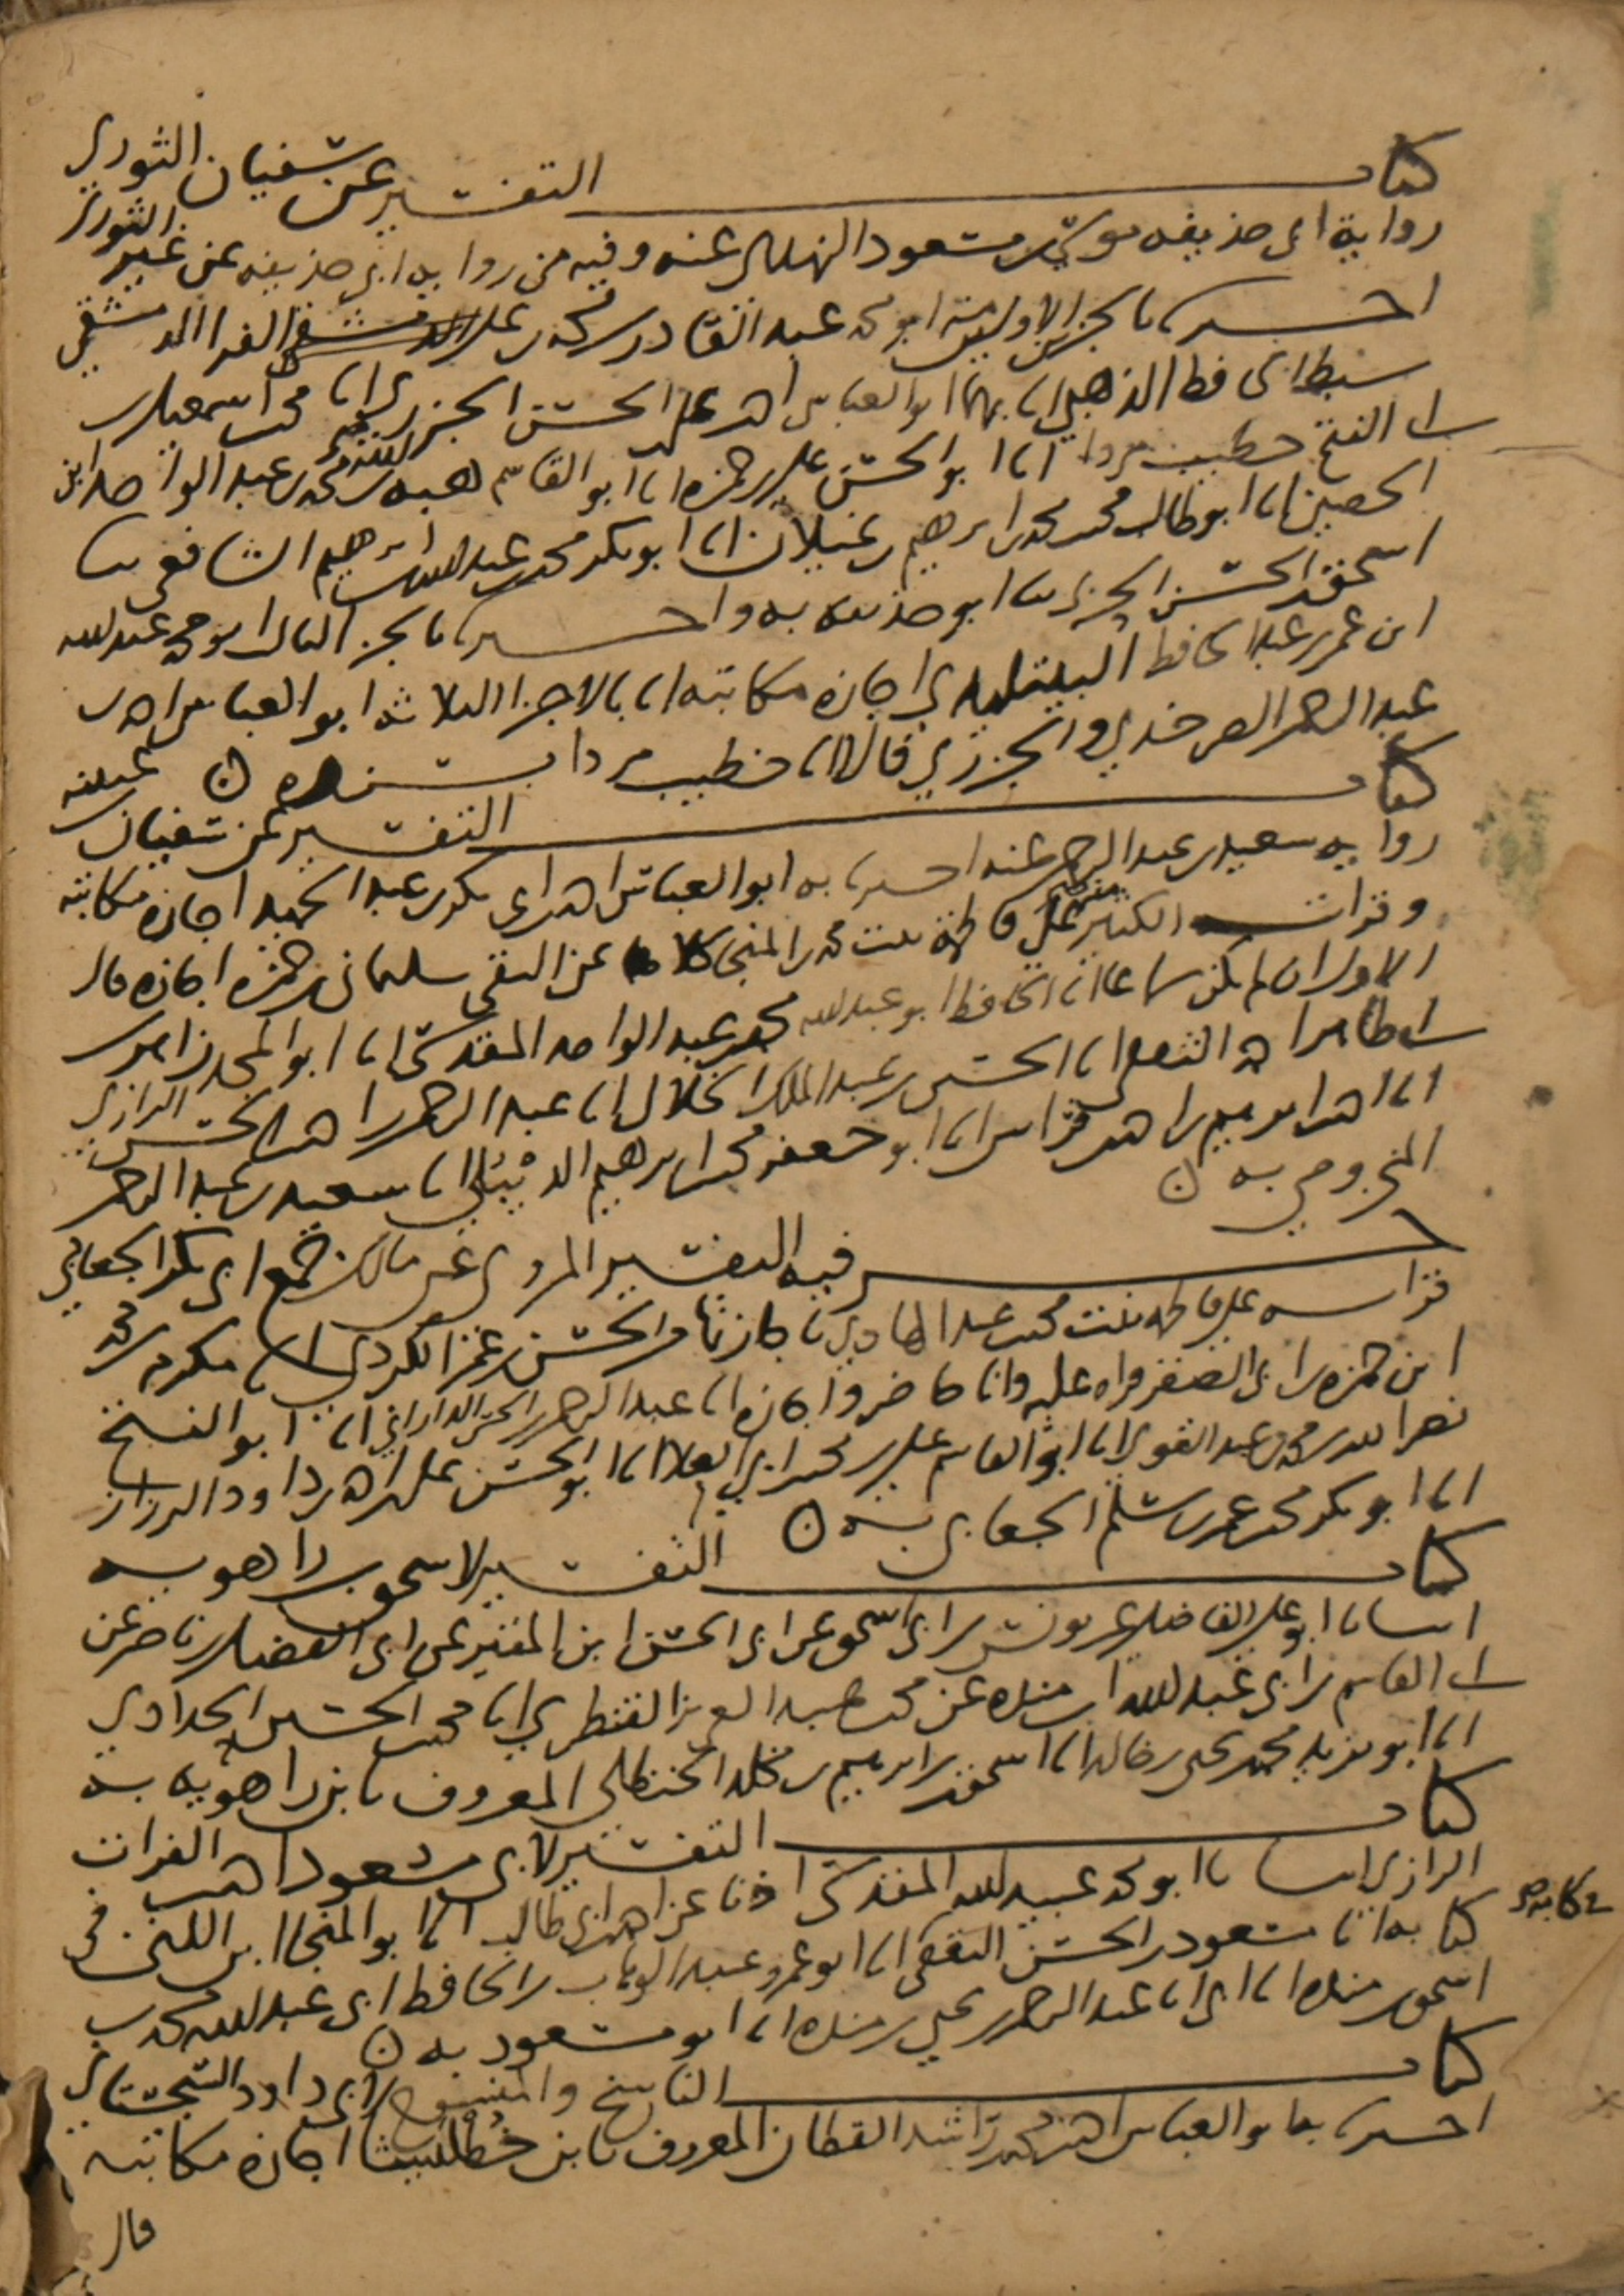 كتاب التفسير عن سفيان الثوري
رواية ابي حذيفه موسى بن مسعود النهدي عنه وفيه من رواية ابي حذيفه عن غير الثوري
اخبرنا بالجزء الاول منه ابو محمد عبد القادر بن محمد بن علي الفرا الدمشقي
سبط الحافظ الذهبي انا بهما ابو العباس احمد بن علي بن الحسن الجزري انا محمد بن اسمعيل بن
ابي الفتح خطيب مردا انا ابو الحسن علي بن حمزه انا ابو القاسم هبة الله بن محمد بن عبد الواحد ابن
الحصين انا ابو طالب محمد بن محمد بن ابرهيم بن غيلان انا ابو بكر محمد بن عبد الله بن ابرهيم الشافعي ثنا
اسحق بن الحسن الحربي ثنا ابو حذيفه به واخبرنا بالجزء الثاني ابو محمد عبد الله
ابن عمر بن عبد الحافظ البيتليدي اجازه مكاتبه انا بالاجزا الثلاثه ابو العباس احمد بن
عبد الرحمن الصرخدي والجزري قالا انا خطيب مردا بسنده ن
كتاب التفسير عن سفيان بن عيينه
رواية سعيد بن عبد الرحمن عنه اخبرنا به ابو العباس احمد بن ابي بكر بن عبد الحميد اجازه مكاتبه
وقرات الكثير منه على فاطمة بنت محمد بن المنجى كلاهما عن التقي سليمان بن حمزه اجازه قال
الاول ان لم يكن سماعا انا الحافظ ابو عبد الله محمد بن عبد الواحد المقدسي انا ابو المجد زاهر بن
ابي طاهر احمد الثقفي انا الحسين بن عبد الملك الخلال انا عبد الرحمن بن احمد بن الحسن الرازي
انا احمد بن ابرهيم بن احمد بن فراس انا ابو جعفر محمد بن ابرهيم الديبلي انا سعيد بن عبد الرحمن
المخزومي به ن
جزء فيه التفسير المروي عن مالك جمع ابي بكر الجعابي
قراته على فاطمه بنت محمد بن عبد الهادي باجازتها من الحسن بن عمر الكردي انا مكرم بن محمد
ابن حمزه بن ابي الصقر قراه عليه وانا حاضر واجازه انا عبد الرحمن بن ابي الحسن الداراني انا ابو الفتح
نصر الله بن محمد بن عبد القوي انا ابو القاسم علي بن محمد بن ابي العلا انا ابو الحسن علي بن احمد بن داود الرزاز
انا ابو بكر محمد بن عمر بن سلم الجعابي به ن
كتاب التفسير لاسحق بن راهويه
انبانا ابو علي الفاضلي عن يونس بن ابي اسحق عن ابي الحسن ابن المقير عن ابي الفضل بن ناصر عن
ابي القاسم بن ابي عبد الله بن منده عن محمد بن عبد العزيز القنطري انا محمد بن الحسين الحدادي
انا ابو يزيد محمد بن يحيى بن خالد انا اسحق بن ابرهيم بن مخلد الحنظلي المعروف بابن راهويه به
كتاب التفسير لابي مسعود احمد بن الفرات
الرازي انبانا ابو محمد عبيد الله المقدسي اذنا عن احمد بن ابي طالب انا ابو المنجا ابن اللتي في
كتابه انا مسعود بن الحسن الثقفي انا ابو عمرو عبد الوهاب بن الحافظ ابي عبد الله محمد بن
في كتابه
اسحق بن منده انا ابي انا عبد الرحمن بن يحيى بن منده انا ابو مسعود به ن
كتاب الناسخ والمنسوخ لابي داود السجستاني
اخبرنا به ابو العباس احمد بن محمد بن راشد القطان المعروف بابن خطليشا اجازه مكاتبه
قال